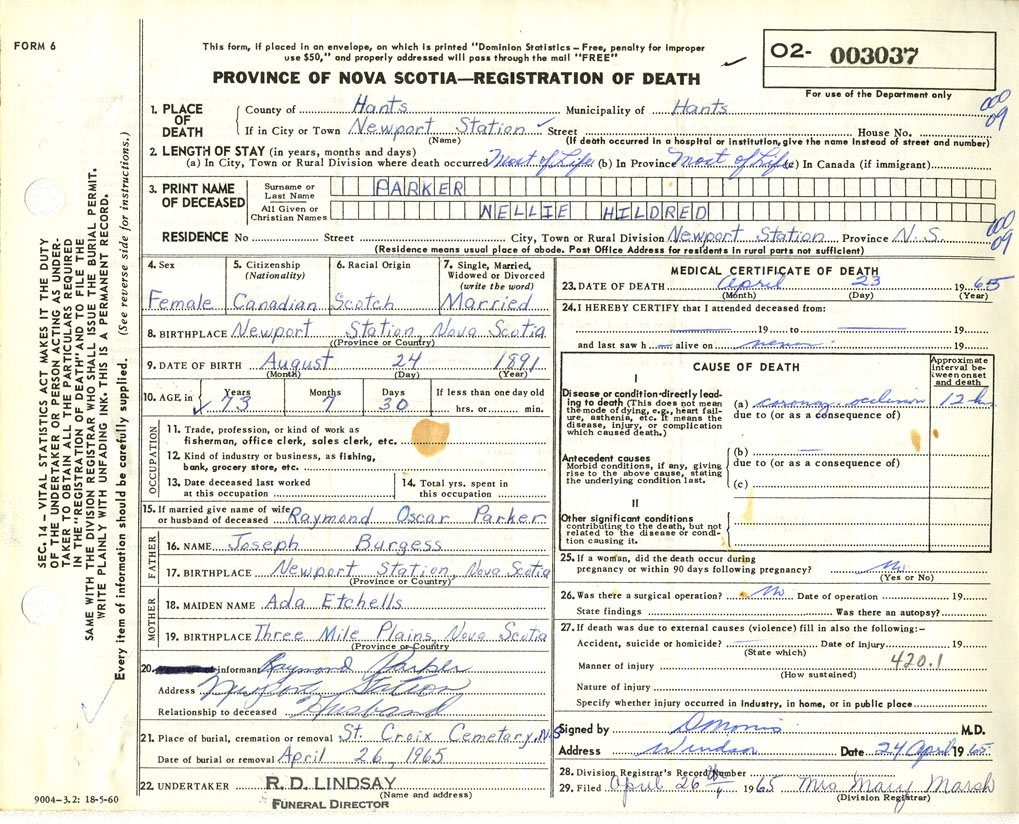 FORM 6
This form, if placed in an envelope, on which is printed "Dominion Statistics – Free, penalty for improper
use $50," and properly addressed will pass through the mail "FREE"
PROVINCE OF NOVA SCOTIA—REGISTRATION OF DEATH
O2- 003037
For use of the Department only
1. PLACE OF DEATH
County of Hants Municipality of Hants
If in City or Town Newport Station Street House No.
(Name) (If death occurred in a hospital or institution, give the name instead of street and number)
000
09
2. LENGTH OF STAY (in years, months and days)
(a) In City, Town or Rural Division where death occurred Most of Life (b) In Province Most of Life (c) In Canada (if immigrant)
3. PRINT NAME OF DECEASED
Surname or Last Name PARKER
All Given or Christian Names NELLIE HILDRED
RESIDENCE No Street City, Town or Rural Division Newport Station Province N.S.
(Residence means usual place of abode. Post Office Address for residents in rural parts not sufficient)
000
09
4. Sex
Female
5. Citizenship (Nationality)
Canadian
6. Racial Origin
Scotch
7. Single, Married, Widowed or Divorced (write the word)
Married
8. BIRTHPLACE Newport Station, Nova Scotia
(Province or Country)
9. DATE OF BIRTH August 24 1891
(Month) (Day) (Year)
10. AGE in Years 73 Months 7 Days 30 If less than one day old hrs. or min.
OCCUPATION
11. Trade, profession, or kind of work as
fisherman, office clerk, sales clerk, etc.
12. Kind of industry or business, as fishing,
bank, grocery store, etc.
13. Date deceased last worked
at this occupation
14. Total yrs. spent in
this occupation
15. If married give name of wife
or husband of deceased Raymond Oscar Parker
FATHER
16. NAME Joseph Burgess
17. BIRTHPLACE Newport Station, Nova Scotia
(Province or Country)
MOTHER
18. MAIDEN NAME Ada Etchells
19. BIRTHPLACE Three Mile Plains, Nova Scotia
(Province or Country)
20. informant Raymond Parker
Address Newport Station
Relationship to deceased Husband
21. Place of burial, cremation or removal St. Croix Cemetary, N.S
Date of burial or removal April 26, 1965
22. UNDERTAKER R. D. LINDSAY
(Name and address)
FUNERAL DIRECTOR
MEDICAL CERTIFICATE OF DEATH
23. DATE OF DEATH April 23 1965
(Month) (Day) (Year)
24. I HEREBY CERTIFY that I attended deceased from:
19 to 19
and last saw h alive on never 19
CAUSE OF DEATH
Approximate interval between onset and death
I
Disease or condition directly leading to death (This does not mean the mode of dying, e.g., heart failure, asthenia, etc. It means the disease, injury, or complication which caused death.)
(a) coronary occlusion 12 hr
due to (or as a consequence of)
Antecedent causes
Morbid conditions, if any, giving rise to the above cause, stating the underlying condition last.
(b)
due to (or as a consequence of)
(c)
II
Other significant conditions
contributing to the death, but not related to the disease or condition causing it.
25. If a woman, did the death occur during
pregnancy or within 90 days following pregnancy? No
(Yes or No)
26. Was there a surgical operation? No Date of operation 19
State findings Was there an autopsy?
27. If death was due to external causes (violence) fill in also the following:–
Accident, suicide or homicide? Date of injury 19
(State which)
Manner of injury 420.1
(How sustained)
Nature of injury
Specify whether injury occurred in industry, in home, or in public place
Signed by M.D.
Address Windsor Date 24 April 1965
28. Division Registrar's Record Number
29. Filed April 26 1965 Mrs Mary Marsh
(Division Registrar)
SEC. 14 – VITAL STATISTICS ACT MAKES IT THE DUTY
OF THE UNDERTAKER OR PERSON ACTING AS UNDER-
TAKER TO OBTAIN ALL THE PARTICULARS REQUIRED
IN THE "REGISTRATION OF DEATH" AND TO FILE THE
SAME WITH THE DIVISION REGISTRAR WHO SHALL ISSUE THE BURIAL PERMIT.
WRITE PLAINLY WITH UNFADING INK. THIS IS A PERMANENT RECORD.
Every item of information should be carefully supplied. (See reverse side for instructions.)
9004-3.2: 18-5-60